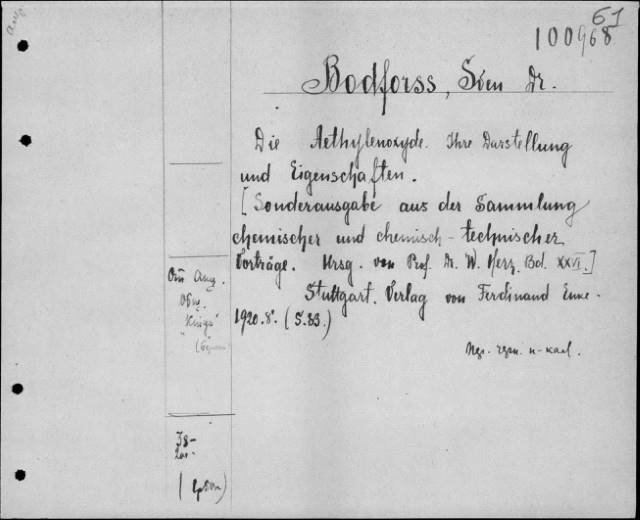 61
100968
Bodforss, Sven Dr.
Die Aethylenoxyde. Ihre Darstellung
und Eigenschaften.
[Sonderausgabe aus der Sammlung
chemischer und chemisch-technischer
Vorträge. Hrsg. von Prof. Dr. W. Herz. Bd. XXVI.]
Stuttgart. Verlag von Ferdinand Enke.
1920. 8°. (S. 83.)
38-